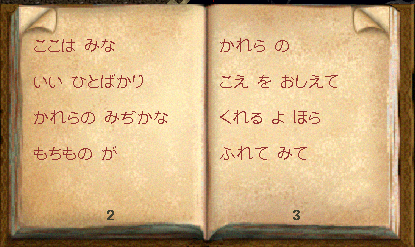 ここは みな
いい ひとばかり
かれらの みぢかな
もちもの が
2
かれら の
こえ を おしえて
くれる よ ほら
ふれて みて
3